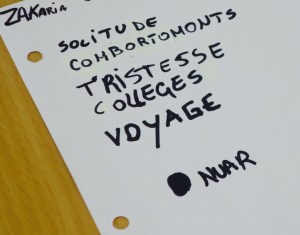 ZAKARIA
SOLITUDE
COMBORTOMONTS
TRISTESSE
COLLEGES
VOYAGE
NUAR